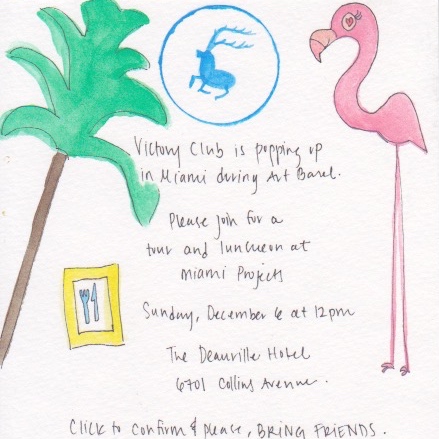 Victory Club is popping up
in Miami during Art Basel.
Please join for a
tour and luncheon at
Miami Projects
Sunday, December 6 at 12pm
The Deauville Hotel
6701 Collins Avenue.
Click to confirm & please, BRING FRIENDS.